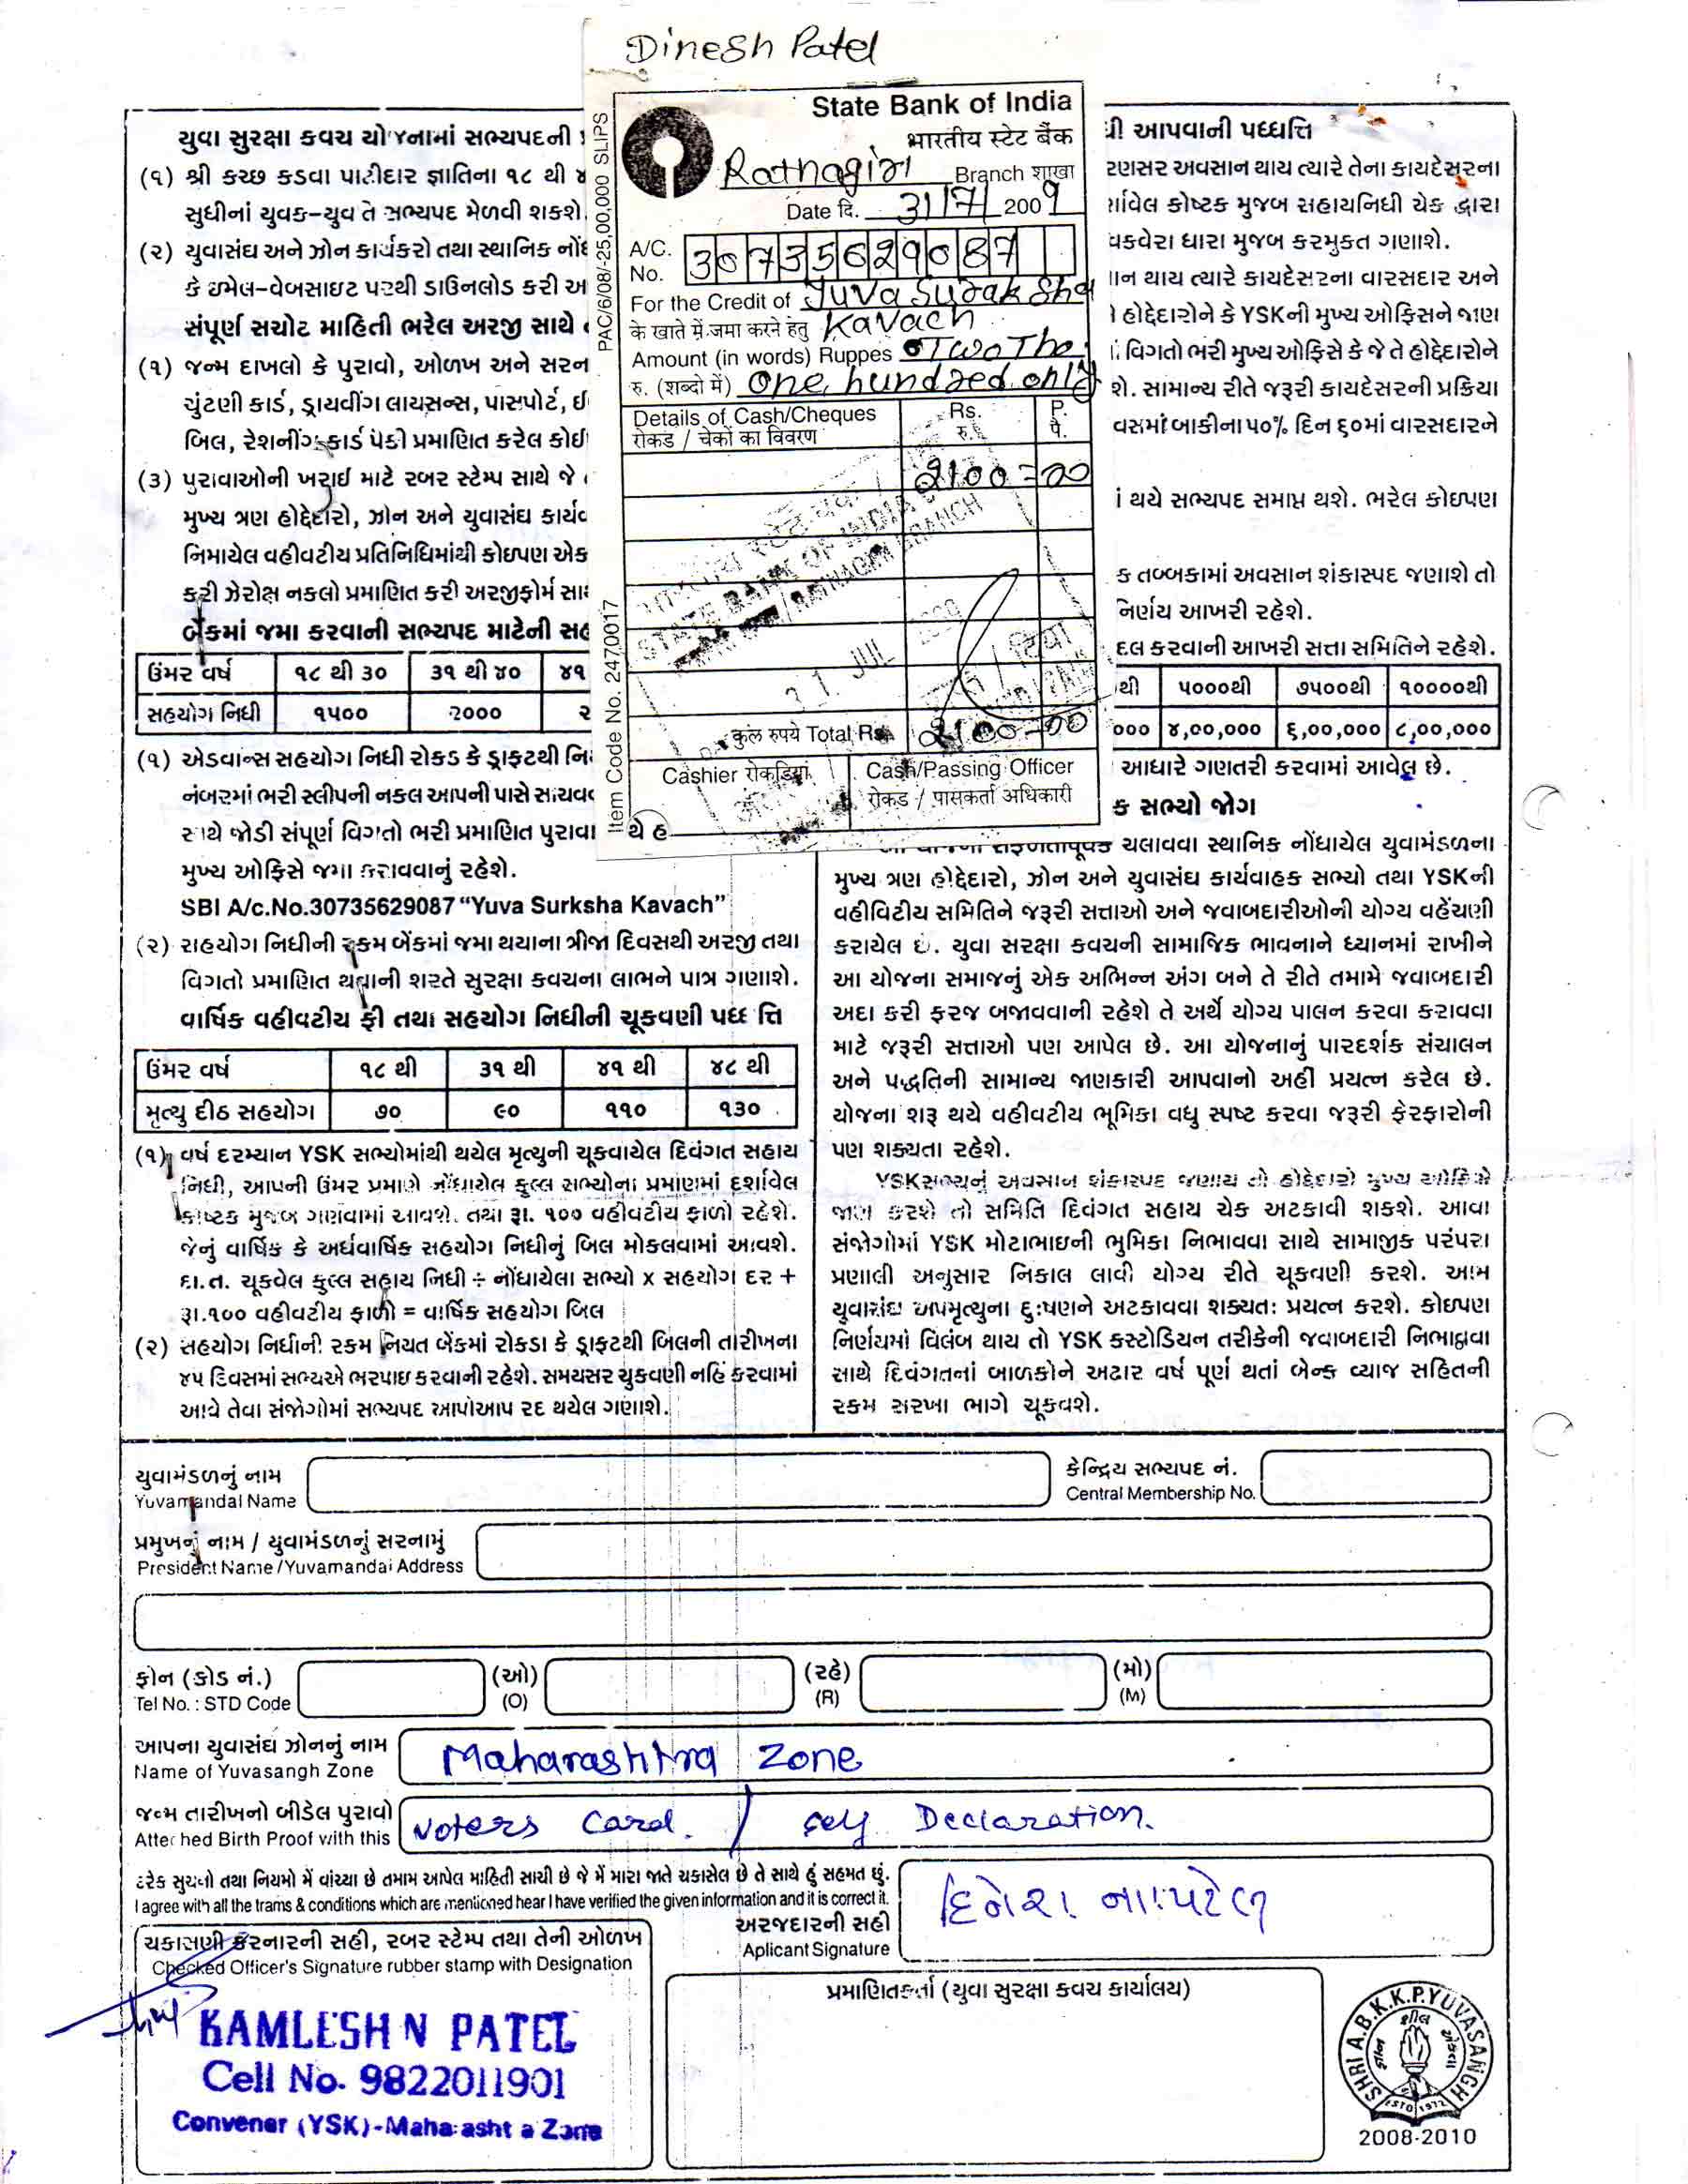 Dinesh Patel
State Bank of India
भारतीय स्टेट बैंक
Ratnagiri Branch शाखा
Date दि. 31/7/ 2009
A/C. No. 30735629087
For the Credit of Yuva Surak Sha
के खाते में जमा करने हेतु Kavach
Amount (in words) Ruppes Two Tho.
रु. (शब्दो में) One hundred only
Details of Cash/Cheques Rs. P.
रोकड / चेकों का विवरण रु. पै.
2100=00
STATE BANK OF INDIA
JUL
कुल रुपये Total Rs. 2100=00
Cashier रोकड़िया Cash/Passing Officer
रोकड / पासकर्ता अधिकारी
PAC/6/08/-25,00,000 SLIPS
Item Code No. 2470017
યુવા સુરક્ષા કવચ યોજનામાં સભ્યપદની
(૧) શ્રી કચ્છ કડવા પાટીદાર જ્ઞાતિના ૧૮ થી
સુધીનાં યુવક-યુવતે સભ્યપદ મેળવી શકશે.
(૨) યુવાસંઘ અને ઝોન કાર્યકરો તથા સ્થાનિક
કે ઇમેલ-વેબસાઇટ પરથી ડાઉનલોડ કરી
સંપૂર્ણ સચોટ માહિતી ભરેલ અરજી સાથે
(૧) જન્મ દાખલો કે પુરાવો, ઓળખ અને
ચુંટણી કાર્ડ, ડ્રાયવીંગ લાયસન્સ, પાસપોર્ટ,
બિલ, રેશનીંગ કાર્ડ પૈકી પ્રમાણિત કરેલ કોઈ
(૩) પુરાવાઓની ખરાઈ માટે રબર સ્ટેમ્પ સાથે જે
મુખ્ય ત્રણ હોદ્દેદારો, ઝોન અને યુવાસંઘ
નિમાયેલ વહીવટીય પ્રતિનિધિમાંથી કોઇપણ એક
કરી ઝેરોક્ષ નકલો પ્રમાણિત કરી અરજીફોર્મ
બેંકમાં જમા કરવાની સભ્યપદ માટેની
ઉંમર વર્ષ ૧૮ થી ૩૦ ૩૧ થી ૪૦ ૪૧
સહયોગ નિધી ૧૫૦૦ ૨૦૦૦
(૧) એડવાન્સ સહયોગ નિધી રોકડ કે ડ્રાફટથી
નંબરમાં ભરી સ્લીપની નકલ આપની પાસે
સાથે જોડી સંપૂર્ણ વિગતો ભરી પ્રમાણિત
મુખ્ય ઓફિસે જમા કરાવવાનું રહેશે.
SBI A/c.No.30735629087 “Yuva Surksha Kavach”
(૨) સહયોગ નિધીની રકમ બેંકમાં જમા થયાના ત્રીજા દિવસથી અરજી તથા
વિગતો પ્રમાણિત થવાની શરતે સુરક્ષા કવચના લાભને પાત્ર ગણાશે.
વાર્ષિક વહીવટીય ફી તથા સહયોગ નિધીની ચૂકવણી પધ્ધત્તિ
ઉંમર વર્ષ ૧૮ થી ૩૧ થી ૪૧ થી ૪૮ થી
મૃત્યુ દીઠ સહયોગ ૭૦ ૯૦ ૧૧૦ ૧૩૦
(૧) વર્ષ દરમ્યાન YSK સભ્યોમાંથી થયેલ મૃત્યુની ચૂકવાયેલ દિવંગત સહાય
નિધી, આપની ઉંમર પ્રમાણે નોંધાયેલ કુલ્લ સભ્યોના પ્રમાણમાં દર્શાવેલ
કોષ્ટક મુજબ ગણવામાં આવશે. તથા રૂા. ૧૦૦ વહીવટીય ફાળો રહેશે.
જેનું વાર્ષિક કે અર્ધવાર્ષિક સહયોગ નિધીનું બિલ મોકલવામાં આવશે.
દા.ત. ચૂકવેલ કુલ્લ સહાય નિધી ÷ નોંધાયેલા સભ્યો x સહયોગ દર +
રૂા.૧૦૦ વહીવટીય ફાળો = વાર્ષિક સહયોગ બિલ
(૨) સહયોગ નિધીની રકમ નિયત બેંકમાં રોકડા કે ડ્રાફટથી બિલની તારીખના
૪૫ દિવસમાં સભ્યએ ભરપાઇ કરવાની રહેશે. સમયસર ચુકવણી નહિં કરવામાં
આવે તેવા સંજોગોમાં સભ્યપદ આપોઆપ રદ થયેલ ગણાશે.
આપવાની પધ્ધત્તિ
અવસાન થાય ત્યારે તેના કાયદેસરના
કોષ્ટક મુજબ સહાયનિધી ચેક દ્વારા
ધારા મુજબ કરમુકત ગણાશે.
થાય ત્યારે કાયદેસરના વારસદાર અને
હોદ્દેદારોને કે YSKની મુખ્ય ઓફિસને જાણ
વિગતો ભરી મુખ્ય ઓફિસે કે જે તે હોદ્દેદારોને
સામાન્ય રીતે જરૂરી કાયદેસરની પ્રક્રિયા
બાકીના ૫૦% દિન ૬૦માં વારસદારને
થયે સભ્યપદ સમાપ્ત થશે. ભરેલ કોઇપણ
તબ્બકામાં અવસાન શંકાસ્પદ જણાશે તો
નિર્ણય આખરી રહેશે.
કરવાની આખરી સત્તા સમિતિને રહેશે.
થી ૫૦૦૦થી ૭૫૦૦થી ૧૦૦૦૦થી
૪,૦૦,૦૦૦ ૬,૦૦,૦૦૦ ૮,૦૦,૦૦૦
આધારે ગણતરી કરવામાં આવેલ છે.
સભ્યો જોગ
ચલાવવા સ્થાનિક નોંધાયેલ યુવામંડળના
મુખ્ય ત્રણ હોદ્દેદારો, ઝોન અને યુવાસંઘ કાર્યવાહક સભ્યો તથા YSKની
વહીવિટીય સમિતિને જરૂરી સત્તાઓ અને જવાબદારીઓની યોગ્ય વહેંચણી
કરાયેલ છે. યુવા સરક્ષા કવચની સામાજિક ભાવનાને ધ્યાનમાં રાખીને
આ યોજના સમાજનું એક અભિન્ન અંગ બને તે રીતે તમામે જવાબદારી
અદા કરી ફરજ બજાવવાની રહેશે તે અર્થે યોગ્ય પાલન કરવા કરાવવા
માટે જરૂરી સત્તાઓ પણ આપેલ છે. આ યોજનાનું પારદર્શક સંચાલન
અને પદ્ધતિની સામાન્ય જાણકારી આપવાનો અહીં પ્રયત્ન કરેલ છે.
યોજના શરૂ થયે વહીવટીય ભૂમિકા વધુ સ્પષ્ટ કરવા જરૂરી ફેરફારોની
પણ શક્યતા રહેશે.
YSKસભ્યનું અવસાન શંકાસ્પદ જણાય તો હોદ્દેદારો મુખ્ય ઓફિસે
જાણ કરશે તો સમિતિ દિવંગત સહાય ચેક અટકાવી શકશે. આવા
સંજોગોમાં YSK મોટાભાઇની ભુમિકા નિભાવવા સાથે સામાજીક પરંપરા
પ્રણાલી અનુસાર નિકાલ લાવી યોગ્ય રીતે ચૂકવણી કરશે. આમ
યુવાસંઘ અપમૃત્યુના દુઃષણને અટકાવવા શક્યતઃ પ્રયત્ન કરશે. કોઇપણ
નિર્ણયમાં વિલંબ થાય તો YSK કસ્ટોડિયન તરીકેની જવાબદારી નિભાવવા
સાથે દિવંગતનાં બાળકોને અઢાર વર્ષ પૂર્ણ થતાં બેન્ક વ્યાજ સહિતની
રકમ સરખા ભાગે ચૂકવશે.
યુવામંડળનું નામ કેન્દ્રિય સભ્યપદ નં.
Yuvamandal Name Central Membership No.
પ્રમુખનું નામ / યુવામંડળનું સરનામું
President Name/Yuvamandal Address
ફોન (કોડ નં.) (ઓ) (રહે) (મો)
Tel No. : STD Code (O) (R) (M)
આપના યુવાસંઘ ઝોનનું નામ
Name of Yuvasangh Zone Maharashtra Zone
જન્મ તારીખનો બીડેલ પુરાવો
Attached Birth Proof with this Voters Card. / self Declaration.
દરેક સુચનો તથા નિયમો મેં વાંચ્યા છે તમામ આપેલ માહિતી સાચી છે જે મેં મારા જાતે ચકાસેલ છે તે સાથે હું સહમત છું.
I agree with all the trams & conditions which are mentioned hear I have verified the given information and it is correct it.
અરજદારની સહી દિનેશ ના. પટેલ
Aplicant Signature
ચકાસણી કરનારની સહી, રબર સ્ટેમ્પ તથા તેની ઓળખ
Checked Officer's Signature rubber stamp with Designation
KAMLESH N PATEL
Cell No. 9822011901
Convener (YSK)-Maharashtra Zone
પ્રમાણિતકર્તા (યુવા સુરક્ષા કવચ કાર્યાલય)
SHRI A.B.K.K.P.YUVASANGH
ESTD 1972
2008-2010